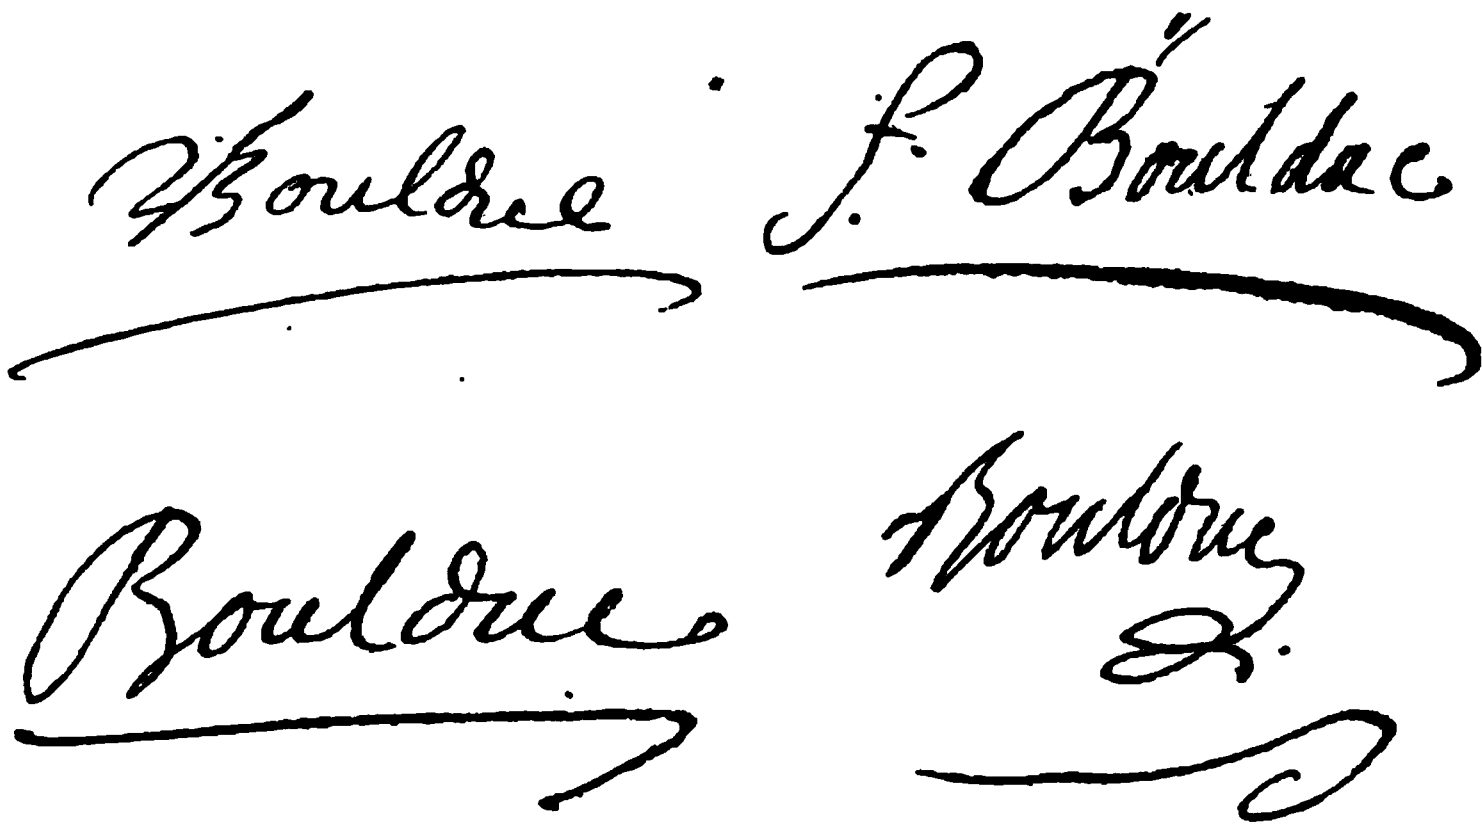 Boulduc
J. Boulduc
Boulduc
Boulduc